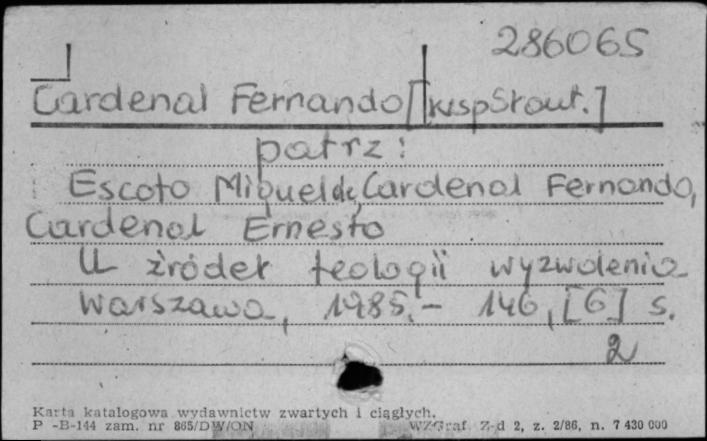 286065
Cardenal Fernando [współaut.]
patrz:
Escoto Miguel de, Cardenal Fernando,
Cardenal Ernesto
U źródeł teologii wyzwolenia
Warszawa, 1985.- 146, [6] s.
2
Karta katalogowa wydawnictw zwartych i ciągłych.
P -B-144 zam. nr 865/DW/ON WZGraf. Z-d 2, z. 2/86, n. 7 430 000